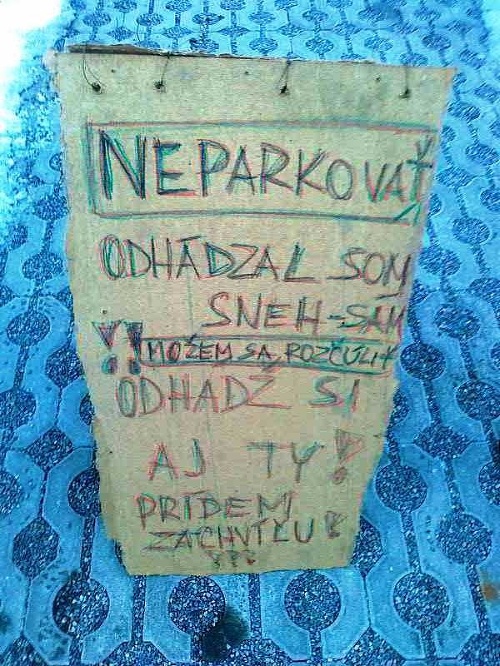 NEPARKOVAŤ
ODHÁDZAL SOM
SNEH-SÁM
!! MOŽEM SA ROZČÚLIŤ
ODHÁDŽ SI
AJ TY!
PRÍDEM
ZACHVÍĽU!
!!!